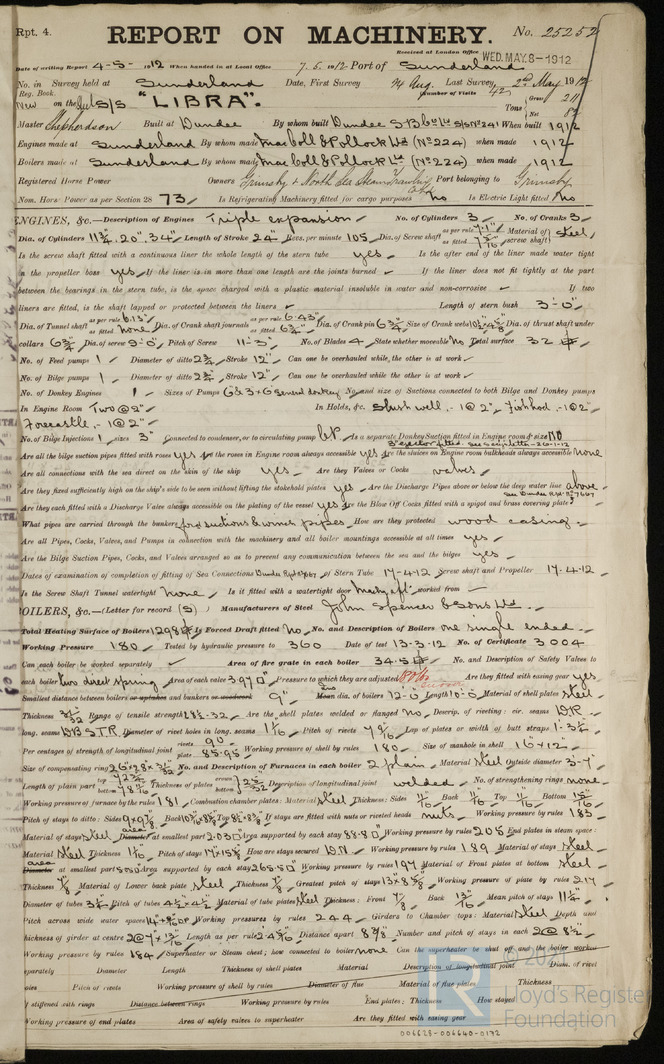 Rpt. 4.
REPORT ON MACHINERY.
No. 25252
Received at London Office WED. MAY. 8-1912
Date of writing Report 4-5-1912 When handed in at Local Office 7.5.1912 Port of Sunderland
No. in Survey held at Sunderland Date, First Survey Aug. Last Survey, 2nd May 1912
Reg. Book. (Number of Visits 42)
New on the S/S "LIBRA". Tons Gross 211 Net
Master Shepherdson Built at Dundee By whom built Dundee S.B. Co Ld S/S No 241 When built 1912
Engines made at Sunderland By whom made MacColl & Pollock Ld (No 224) when made 1912
Boilers made at Sunderland By whom made MacColl & Pollock Ld (No 224) when made 1912
Registered Horse Power Owners Grimsby & North Sea Steam Trawling Co Ld Port belonging to Grimsby
Nom. Horse Power as per Section 28 73 Is Refrigerating Machinery fitted for cargo purposes No Is Electric Light fitted No
ENGINES, &c.—Description of Engines Triple expansion No. of Cylinders 3 No. of Cranks 3
Dia. of Cylinders 11¾", 20", 34" Length of Stroke 24" Revs. per minute 105 Dia. of Screw shaft as per rule 7.1" as fitted Material of screw shaft Steel
Is the screw shaft fitted with a continuous liner the whole length of the stern tube yes Is the after end of the liner made water tight
in the propeller boss yes If the liner is in more than one length are the joints burned If the liner does not fit tightly at the part
between the bearings in the stern tube, is the space charged with a plastic material insoluble in water and non-corrosive If two
liners are fitted, is the shaft lapped or protected between the liners Length of stern bush 3'-0"
Dia. of Tunnel shaft as per rule 6.13" as fitted none Dia. of Crank shaft journals as per rule 6.43" as fitted 6¾" Dia. of Crank pin 6¾" Size of Crank webs Dia. of thrust shaft under
collars 6¾" Dia. of screw 9'-0" Pitch of Screw 11'-3" No. of Blades 4 State whether moveable No Total surface 32
No. of Feed pumps 1 Diameter of ditto 2¾" Stroke 12" Can one be overhauled while the other is at work
No. of Bilge pumps 1 Diameter of ditto 2¾" Stroke 12" Can one be overhauled while the other is at work
No. of Donkey Engines 1 Sizes of Pumps general donkey No. and size of Suctions connected to both Bilge and Donkey pumps
In Engine Room Two @ 2" In Holds, &c. Slush well,- 1 @ 2", Fish hold,- 1 @ 2"
Forecastle,- 1 @ 2"
No. of Bilge Injections 1 sizes 3" Connected to condenser, or to circulating pump Is a separate Donkey Suction fitted in Engine room & size No
Are all the bilge suction pipes fitted with roses yes Are the roses in Engine room always accessible yes Are the sluices on Engine room bulkheads always accessible none
Are all connections with the sea direct on the skin of the ship yes Are they Valves or Cocks valves
Are they fixed sufficiently high on the ship's side to be seen without lifting the stokehold plates yes Are the Discharge Pipes above or below the deep water line above
Are they each fitted with a Discharge Valve always accessible on the plating of the vessel yes Are the Blow Off Cocks fitted with a spigot and brass covering plate
What pipes are carried through the bunkers fwd suctions & winch pipes How are they protected wood casing
Are all Pipes, Cocks, Valves, and Pumps in connection with the machinery and all boiler mountings accessible at all times yes
Are the Bilge Suction Pipes, Cocks, and Valves arranged so as to prevent any communication between the sea and the bilges yes
Dates of examination of completion of fitting of Sea Connections of Stern Tube 17-4-12 Screw shaft and Propeller 17-4-12
Is the Screw Shaft Tunnel watertight None Is it fitted with a watertight door worked from
BOILERS, &c.—(Letter for record (S)) Manufacturers of Steel John Spencer & Sons Ld.
Total Heating Surface of Boilers 1298 Is Forced Draft fitted No No. and Description of Boilers one single ended
Working Pressure 180 Tested by hydraulic pressure to 360 Date of test 13-3-12 No. of Certificate 3004
Can each boiler be worked separately Area of fire grate in each boiler 34.5 No. and Description of Safety Valves to
each boiler two direct spring Area of each valve 3.97 Pressure to which they are adjusted Are they fitted with easing gear yes
Smallest distance between boilers or uptakes and bunkers or woodwork 9" Mean dia. of boilers 12'-0" Length 10'-0" Material of shell plates steel
Thickness Range of tensile strength 28½-32 Are the shell plates welded or flanged No Descrip. of riveting: cir. seams D.R.
long. seams D.B.S.T.R. Diameter of rivet holes in long. seams 1 1/16 Pitch of rivets Lap of plates or width of butt straps 1'-3¼"
Per centages of strength of longitudinal joint rivets 90 plate 85.95 Working pressure of shell by rules 180 Size of manhole in shell 16 x 12
Size of compensating ring No. and Description of Furnaces in each boiler 2 plain Material steel Outside diameter 3'-7"
Length of plain part top bottom Thickness of plates crown bottom Description of longitudinal joint welded No. of strengthening rings none
Working pressure of furnace by the rules 181 Combustion chamber plates: Material steel Thickness: Sides 11/16 Back 11/16 Top 11/16 Bottom 15/16
Pitch of stays to ditto: Sides Back Top If stays are fitted with nuts or riveted heads nuts Working pressure by rules 183
Material of stays steel area at smallest part 2.03 Area supported by each stay 88.9 Working pressure by rules 205 End plates in steam space:
Material steel Thickness Pitch of stays How are stays secured D.N. Working pressure by rules 189 Material of stays steel
area at smallest part Area supported by each stay 265.50 Working pressure by rules 197 Material of Front plates at bottom steel
Thickness Material of Lower back plate steel Thickness Greatest pitch of stays Working pressure of plate by rules 217
Diameter of tubes 3¼" Pitch of tubes 4½ x 4½ Material of tube plates steel Thickness: Front Back Mean pitch of stays 11¼"
Pitch across wide water spaces Working pressures by rules 244 Girders to Chamber tops: Material steel Depth and
thickness of girder at centre Length as per rule Distance apart Number and pitch of stays in each 2 @ 8½"
Working pressure by rules 184 Superheater or Steam chest; how connected to boiler none Can the superheater be shut off and the boiler worked
separately Diameter Length Thickness of shell plates Material Description of longitudinal joint Diam. of rivet
holes Pitch of rivets Working pressure of shell by rules Diameter of flue Material of flue plates Thickness
If stiffened with rings Distance between rings Working pressure by rules End plates: Thickness How stayed
Working pressure of end plates Area of safety valves to superheater Are they fitted with easing gear
Lloyd's Register
Foundation
006628-006640-0172